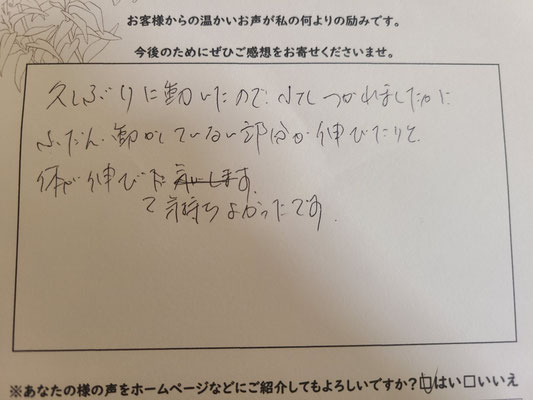 お客様からの温かいお声が私の何よりの励みです。
今後のためにぜひご感想をお寄せくださいませ。
久しぶりに動いたので、少しつかれましたが
ふだん動かしていない部分が伸びたりと
体が伸びた気がします。
て気持ちよかったです。
※あなたの様の声をホームページなどにご紹介してもよろしいですか?☑はい□いいえ